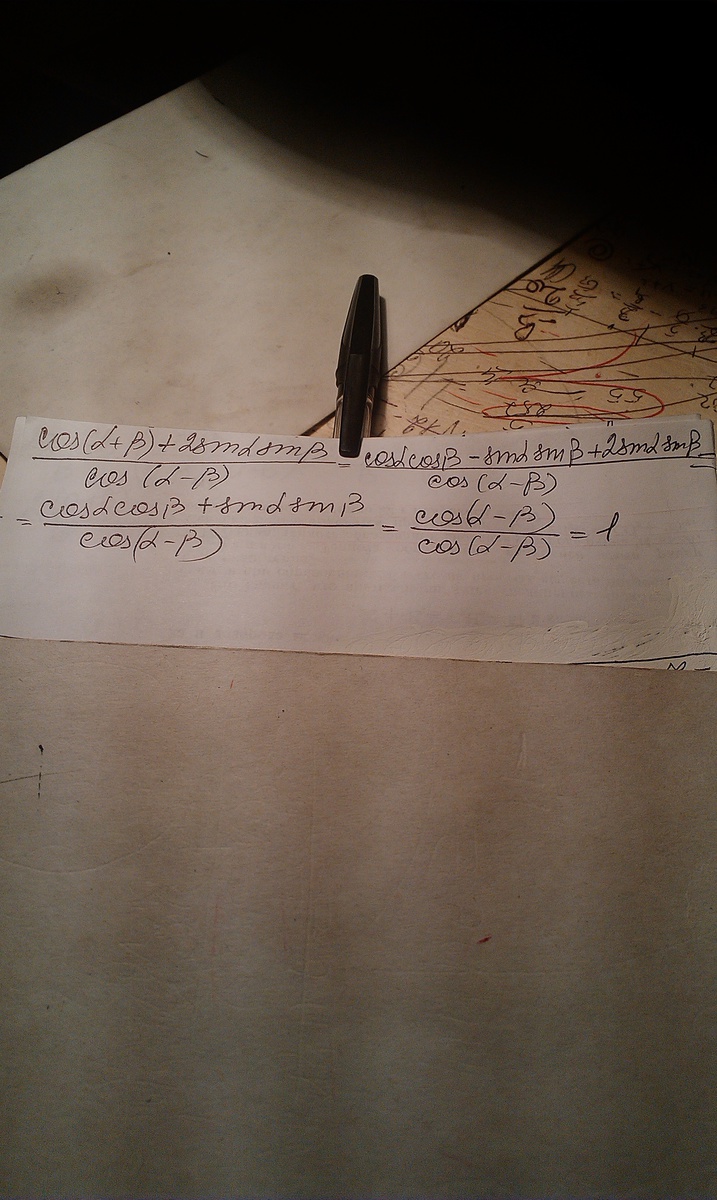 cos(α+β)+2sinα sinβ / cos(α-β) = cosα cosβ - sinα sinβ + 2sinα sinβ / cos(α-β) =
= cosα cosβ + sinα sinβ / cos(α-β) = cos(α-β) / cos(α-β) = 1